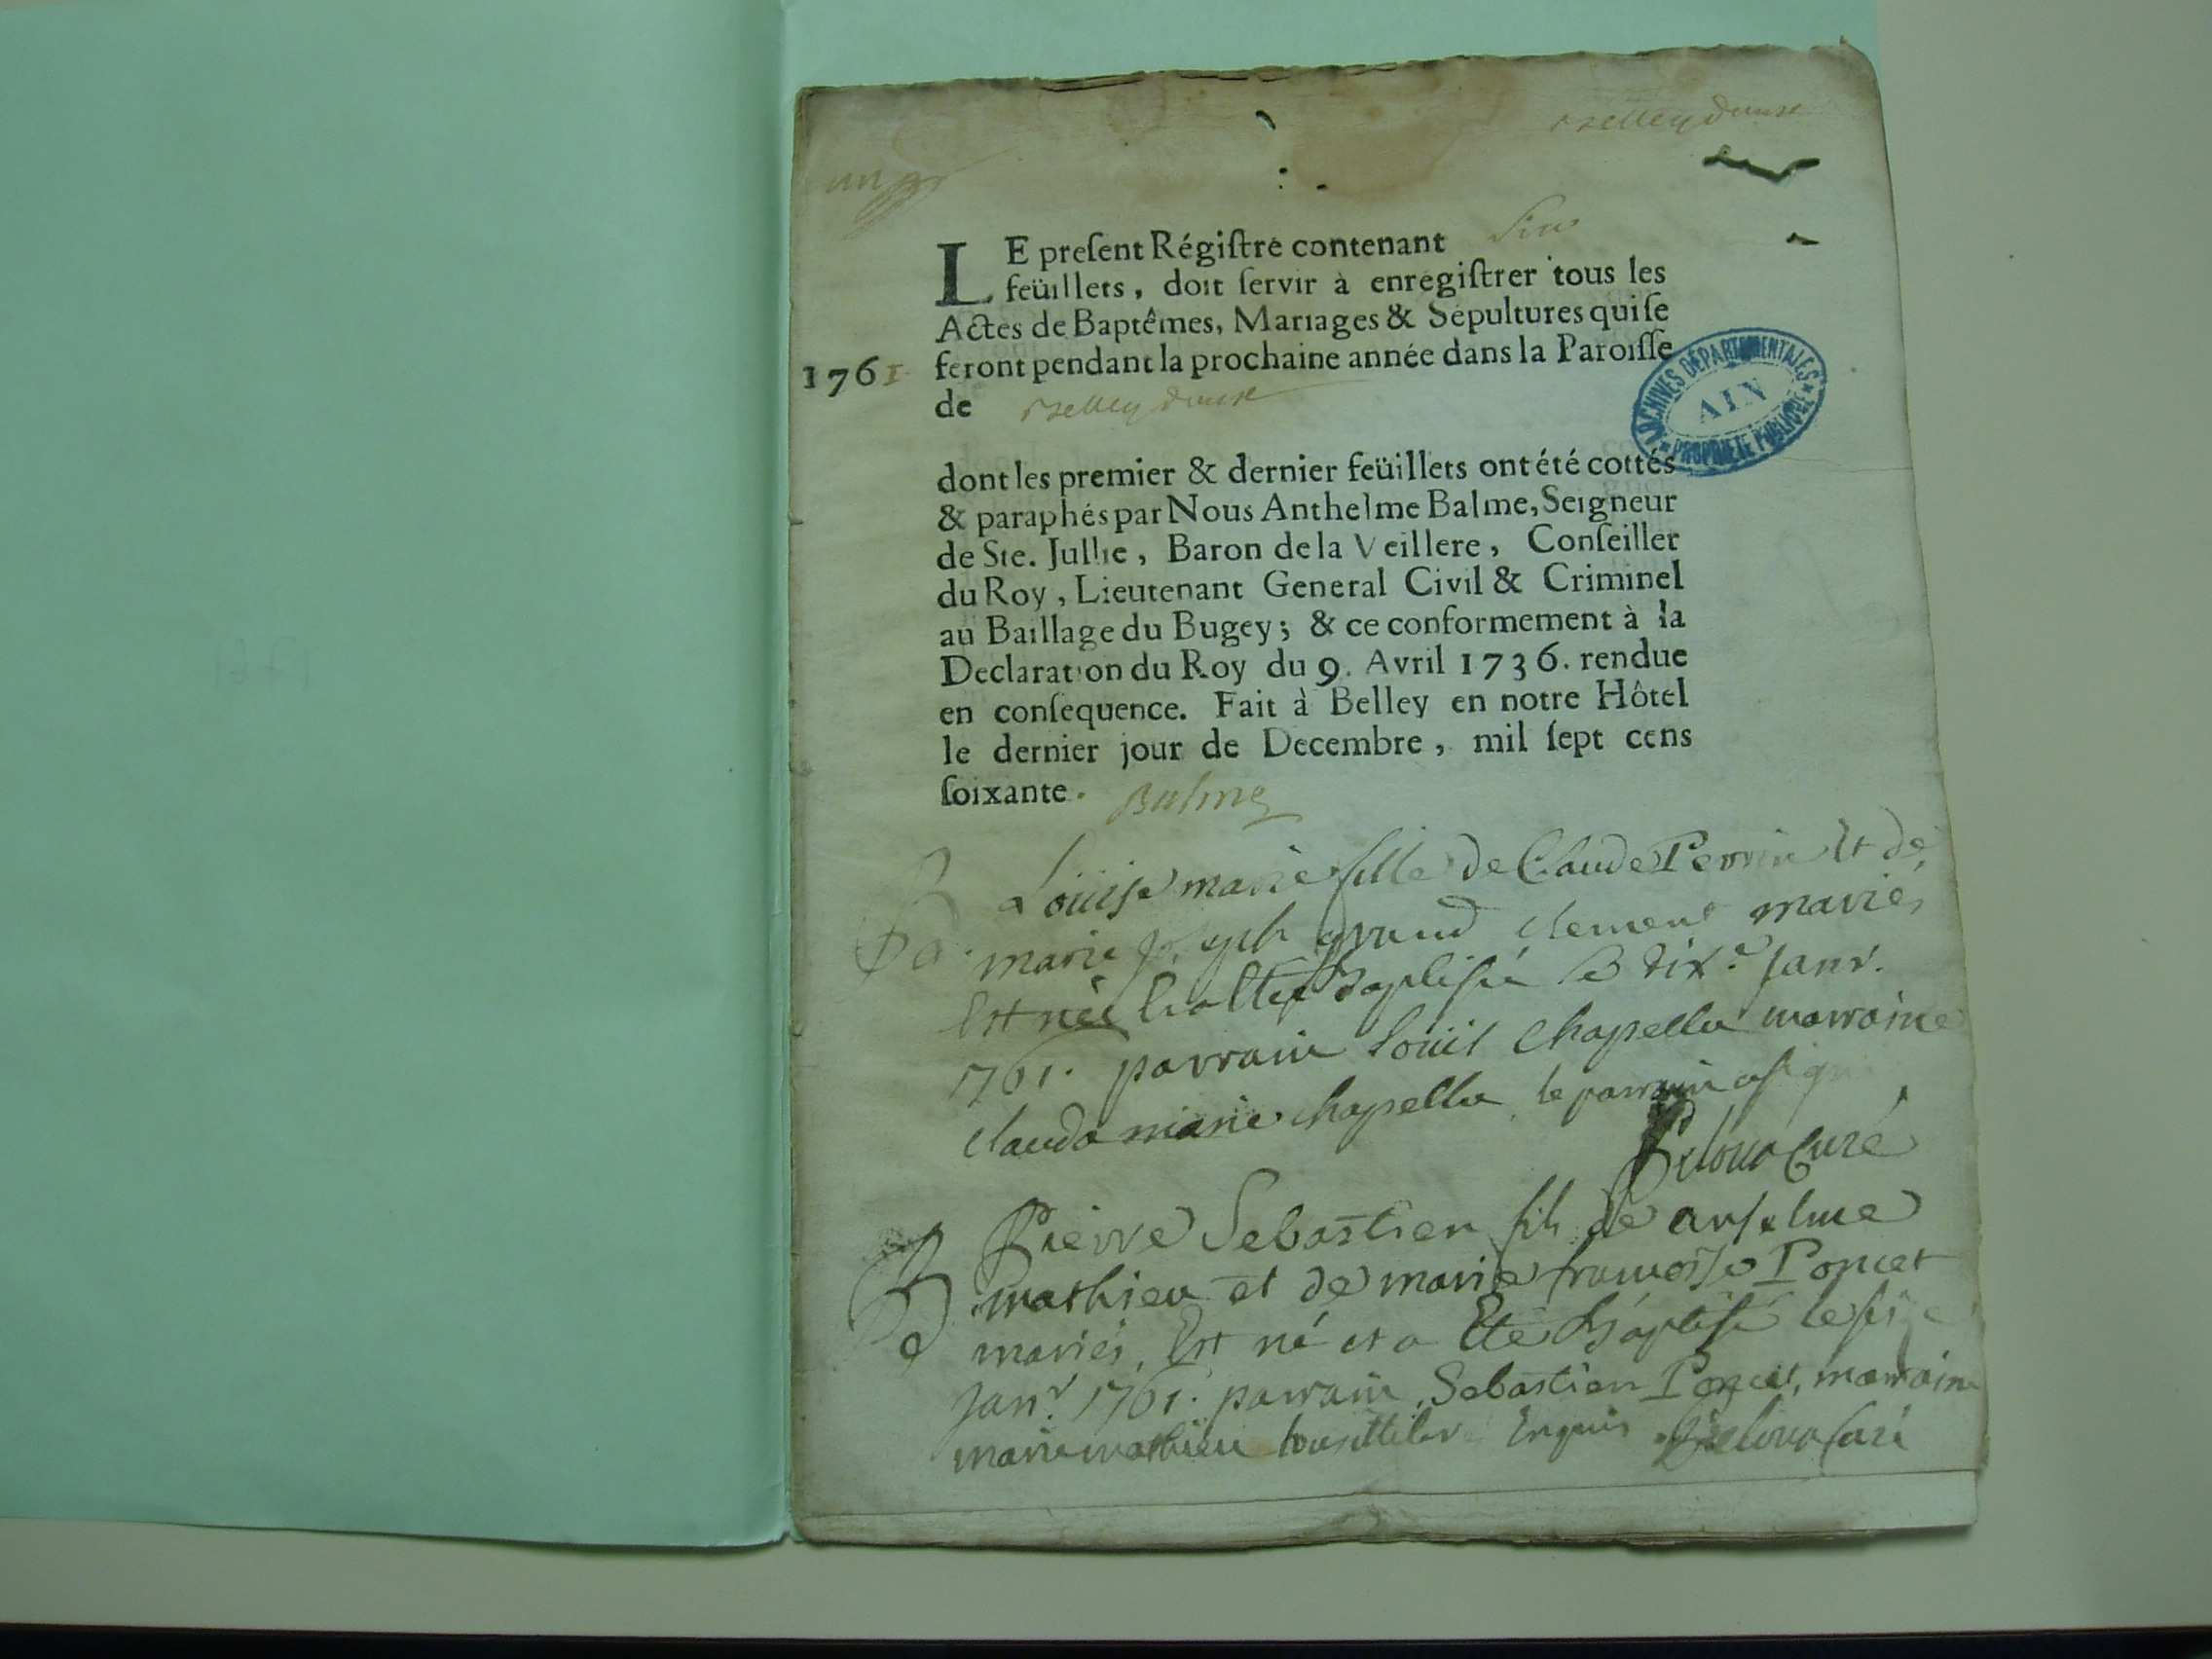 LE present Régistre contenant
feüillets, doit servir à enregistrer tous les
Actes de Baptêmes, Mariages & Sépultures qui se
1761 feront pendant la prochaine année dans la Paroisse
de
ARCHIVES DÉPARTEMENTALES
AIN
PROPRIÉTÉ PUBLIQUE
dont les premier & dernier feüillets ont été cottés
& paraphés par Nous Anthelme Balme, Seigneur
de Ste. Jullie, Baron de la Veillere, Conseiller
du Roy, Lieutenant General Civil & Criminel
au Baillage du Bugey; & ce conformement à la
Declaration du Roy du 9. Avril 1736. rendue
en consequence. Fait à Belley en notre Hôtel
le dernier jour de Decembre, mil sept cens
soixante. Balme
Loüise marie fille de Claude Perrin Et de
marie joseph grand clement mariés
Est née Et a Eté Baptisée le dix.e Janv.
1761. parrain Loüis Chapella marraine
claude marie chapella le parrain a signé
Curé
Pierre Sebastien fils de anselme
mathieu et de marie francoise Poncet
mariés, Est né et a Eté Baptisé le
Janv. 1761. parrain Sebastien Poncet, marraine
marie mathieu Enquis curé